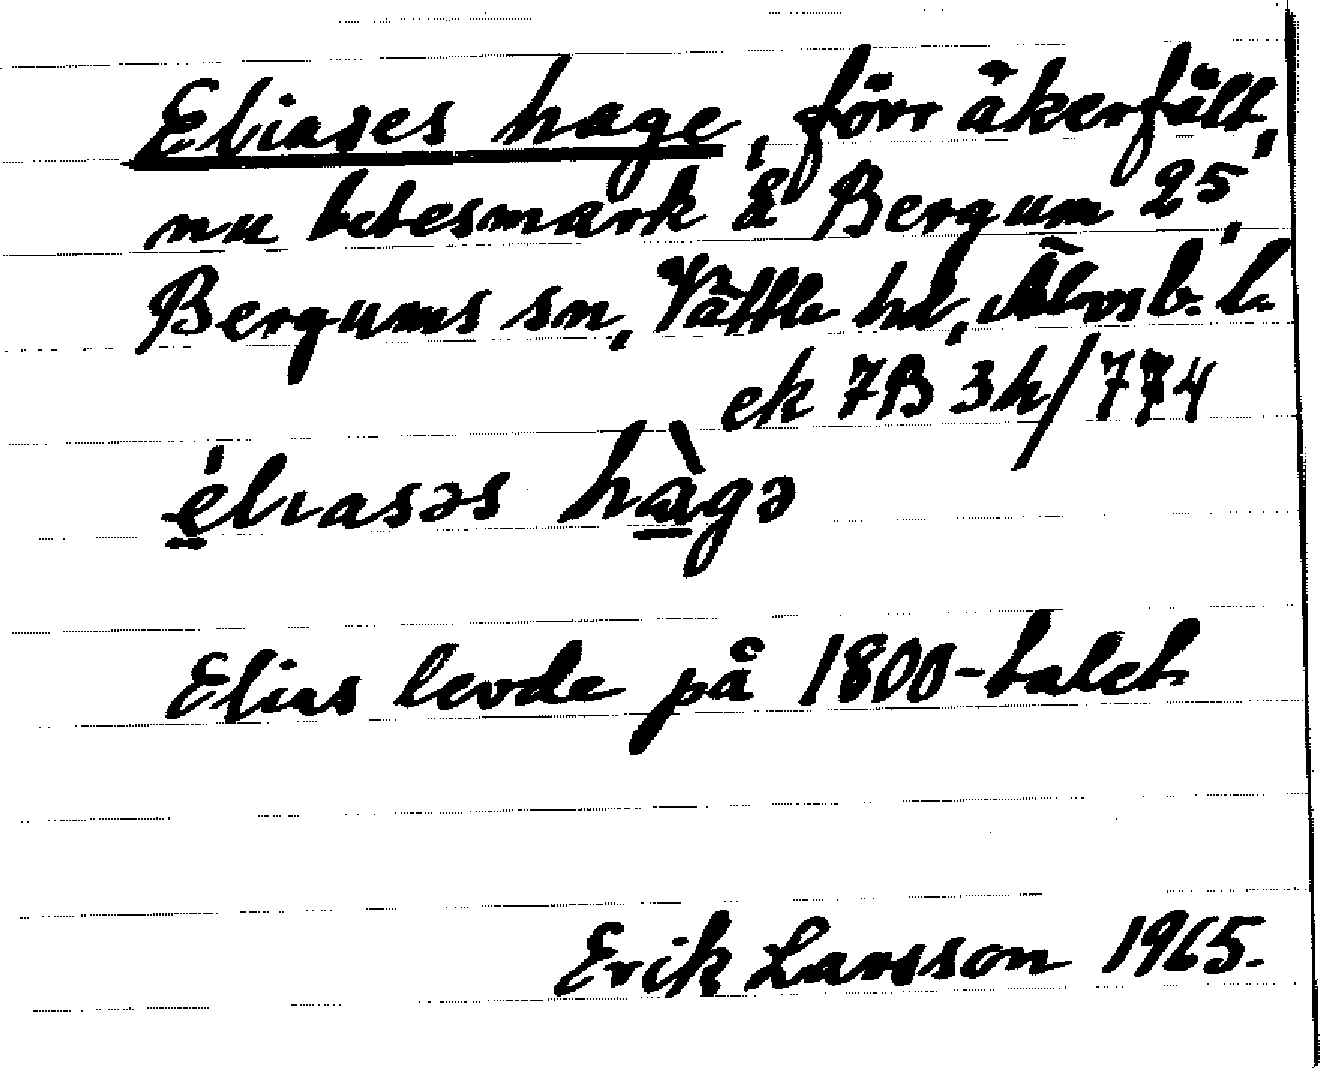 Eliases hage, förr åkerfält,
nu betesmark å Bergum 25,
Bergums sn, Vättle hd, Älvsb. l.
ek 7B 3h/774
élıasəs hàgə
Elias levde på 1800-talet.
Erik Larsson 1965.